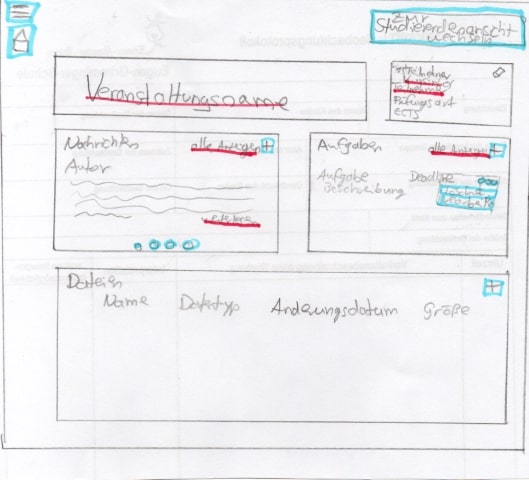 zur
Studierendenansicht
wechseln
Veranstaltungsname
Teilnehmer
Prüfungsart
ECTS
Nachrichten
alle Anzeigen +
Autor
weiterlesen
Aufgaben
alle Anzeigen +
Aufgabe
Beschreibung
Deadline
Dateien
+
Name
Dateityp
Änderungsdatum
Größe